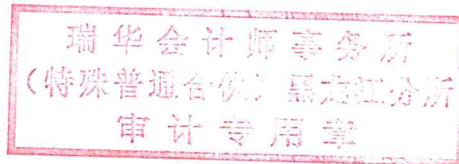 瑞华会计师事务所
（特殊普通合伙）黑龙江分所
审计专用章